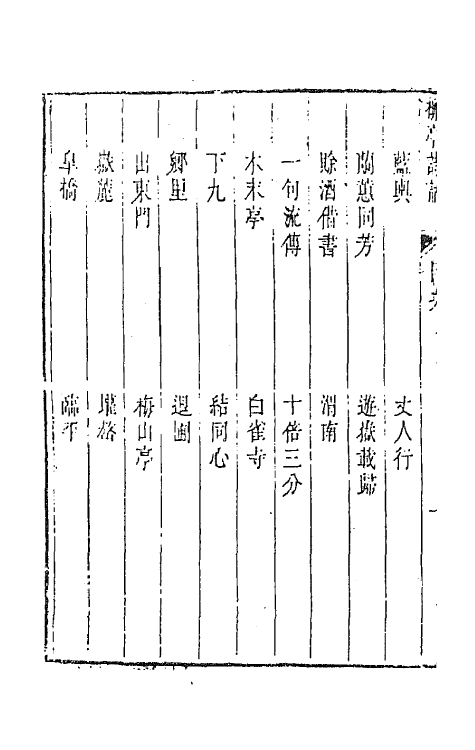 柳亭詩話
籃輿 丈人行
蘭蕙同芳 遊嶽載歸
賒酒借書 渭南
一句流傳 十倍三分
木末亭 白雀寺
下九 結同心
鄉里 退圃
出東門 梅山亭
嶽麓
皐橋 臨平